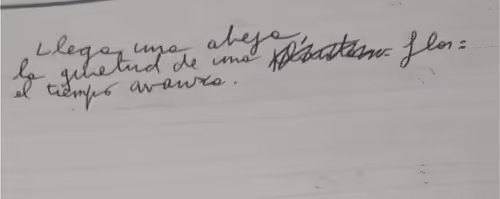 Llega una abeja,
la quietud de una flor:
el tiempo avanza.